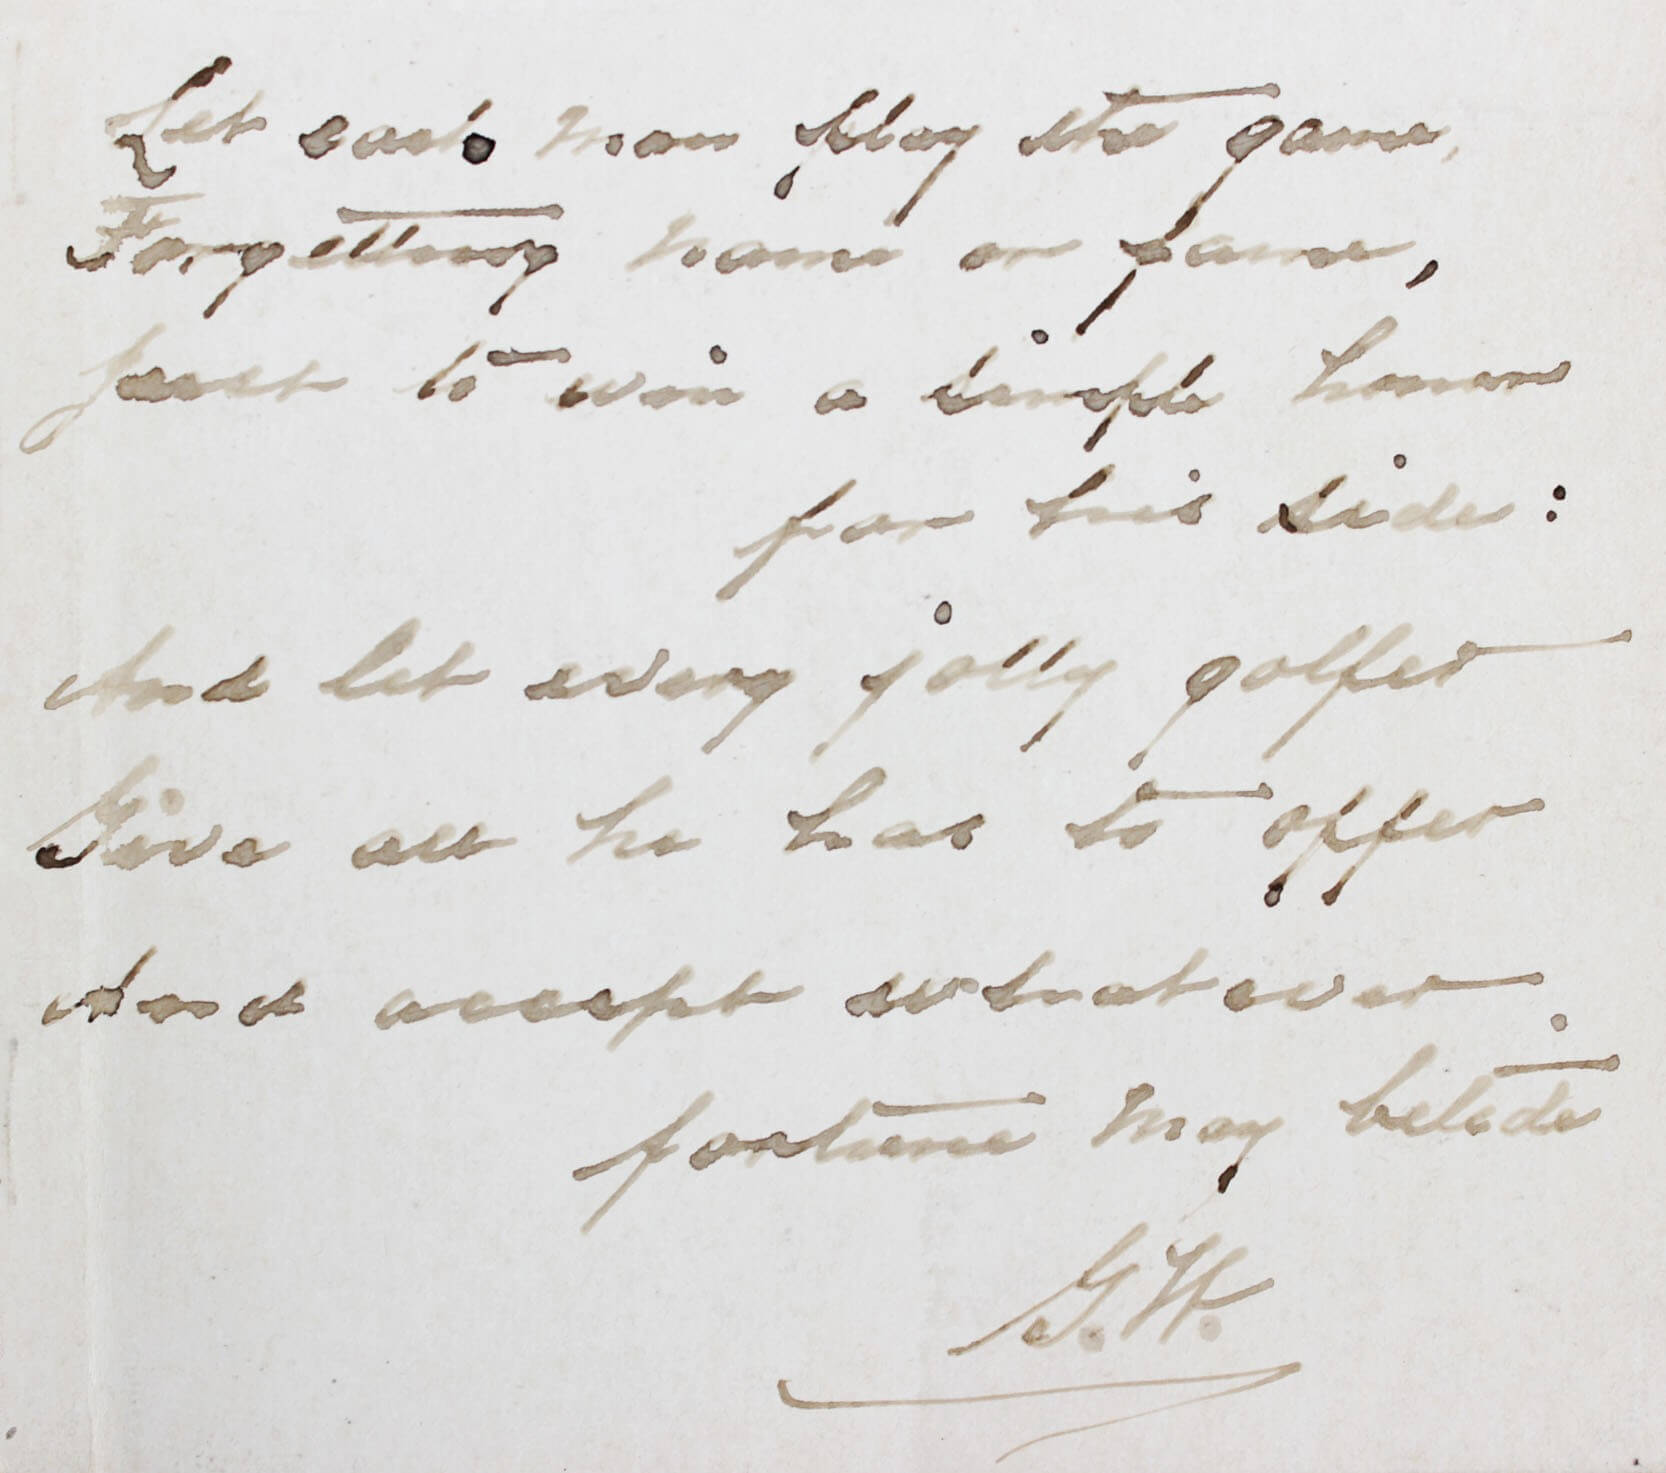 Let each man play the game,
Forgetting name or fame,
Just to win a simple honor
for his side:
And let every jolly golfer
Give all he has to offer
And accept whatever
fortune may betide.
G.W.